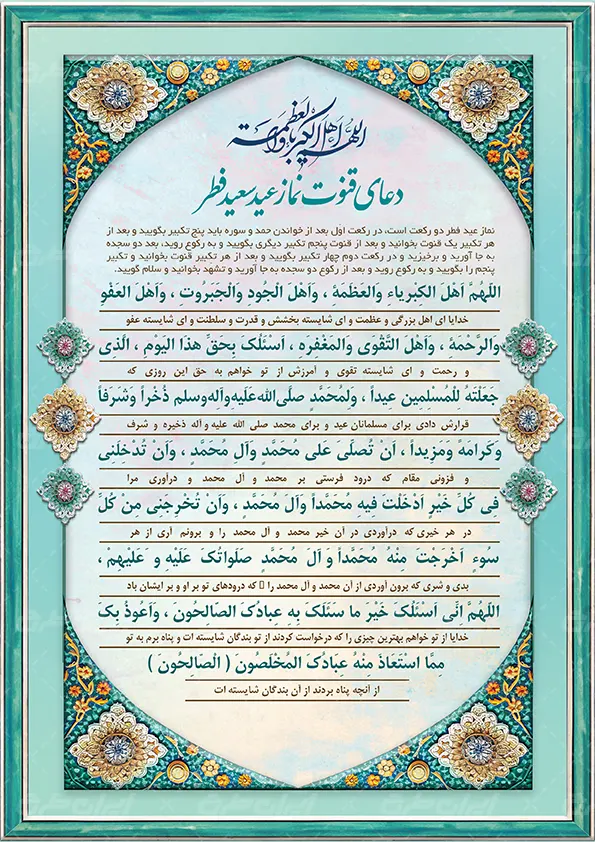 اللهم اهل الکبریاء والعظمة
دعای قنوت نماز عید سعید فطر
نماز عید فطر دو رکعت است، در رکعت اول بعد از خواندن حمد و سوره باید پنج تکبیر بگویید و بعد از
هر تکبیر یک قنوت بخوانید و بعد از قنوت پنجم تکبیر دیگری بگویید و به رکوع روید، بعد دو سجده
به جا آورید و برخیزید و در رکعت دوم چهار تکبیر بگویید و بعد از هر تکبیر قنوت بخوانید و تکبیر
پنجم را بگویید و به رکوع روید و بعد از رکوع دو سجده به جا آورید و تشهد بخوانید و سلام گویید.
اللهُمَّ اَهْلَ الْکِبْرِیاءِ وَالْعَظَمَةِ ، وَاَهْلَ الْجُودِ وَالْجَبَرُوتِ ، وَاَهْلَ الْعَفْوِ
خدایا ای اهل بزرگی و عظمت و ای شایسته بخشش و قدرت و سلطنت و ای شایسته عفو
وَالرَّحْمَةِ ، وَاَهْلَ التَّقْوی وَالْمَغْفِرَهِ ، اَسْئَلُکَ بِحَقِّ هذَا الیَوْمِ ، الَّذی
و رحمت و ای شایسته تقوی و آمرزش از تو خواهم به حق این روزی که
جَعَلْتَهُ لِلْمُسلِمینَ عِیداً ، وَلِمُحَمَّدٍ صلَّی‌الله‌عَلَیهِ‌وآلِه‌وسلم ذُخْراً وَشَرَفاً
قرارش دادی برای مسلمانان عید و برای محمد صلی الله علیه و آله ذخیره و شرف
وَکَرامَةً وَمَزِیداً ، اَنْ تُصلَّیَ عَلی مُحَمَّدٍ وَآلِ مُحَمَّدٍ ، وَاَنْ تُدْخِلَنِی
و فزونی مقام که درود فرستی بر محمد و آل محمد و درآوری مرا
فِی کُلِّ خَیْرٍ اَدْخَلْتَ فِیهِ مُحَمَّداً وَآلَ مُحَمَّدٍ ، وَاَنْ تُخْرِجَنِی مِنْ کُلِّ
در هر خیری که درآوردی در آن خیر محمد و آل محمد را و برونم آری از هر
سُوءٍ اَخْرَجْتَ مِنْهُ مُحَمَّداً وَ آلَ مُحَمَّدٍ صَلَواتُکَ عَلَیْهِ وَ عَلَیهِمْ ،
بدی و شری که برون آوردی از آن محمد و آل محمد را که درودهای تو بر او و بر ایشان باد
اللهُمَّ اِنّی اَسْئَلُکَ خَیْرَ ما سَئَلَکَ بِهِ عِبادُکَ الصالِحُونَ ، وَاَعُوذُ بِکَ
خدایا از تو خواهم بهترین چیزی را که درخواست کردند از تو بندگان شایسته ات و پناه برم به تو
مِمَّا اسْتَعَاذَ مِنْهُ عِبَادُکَ الْمُخْلَصُونَ ( الْصَالِحُونَ )
از آنچه پناه بردند از آن بندگان شایسته ات